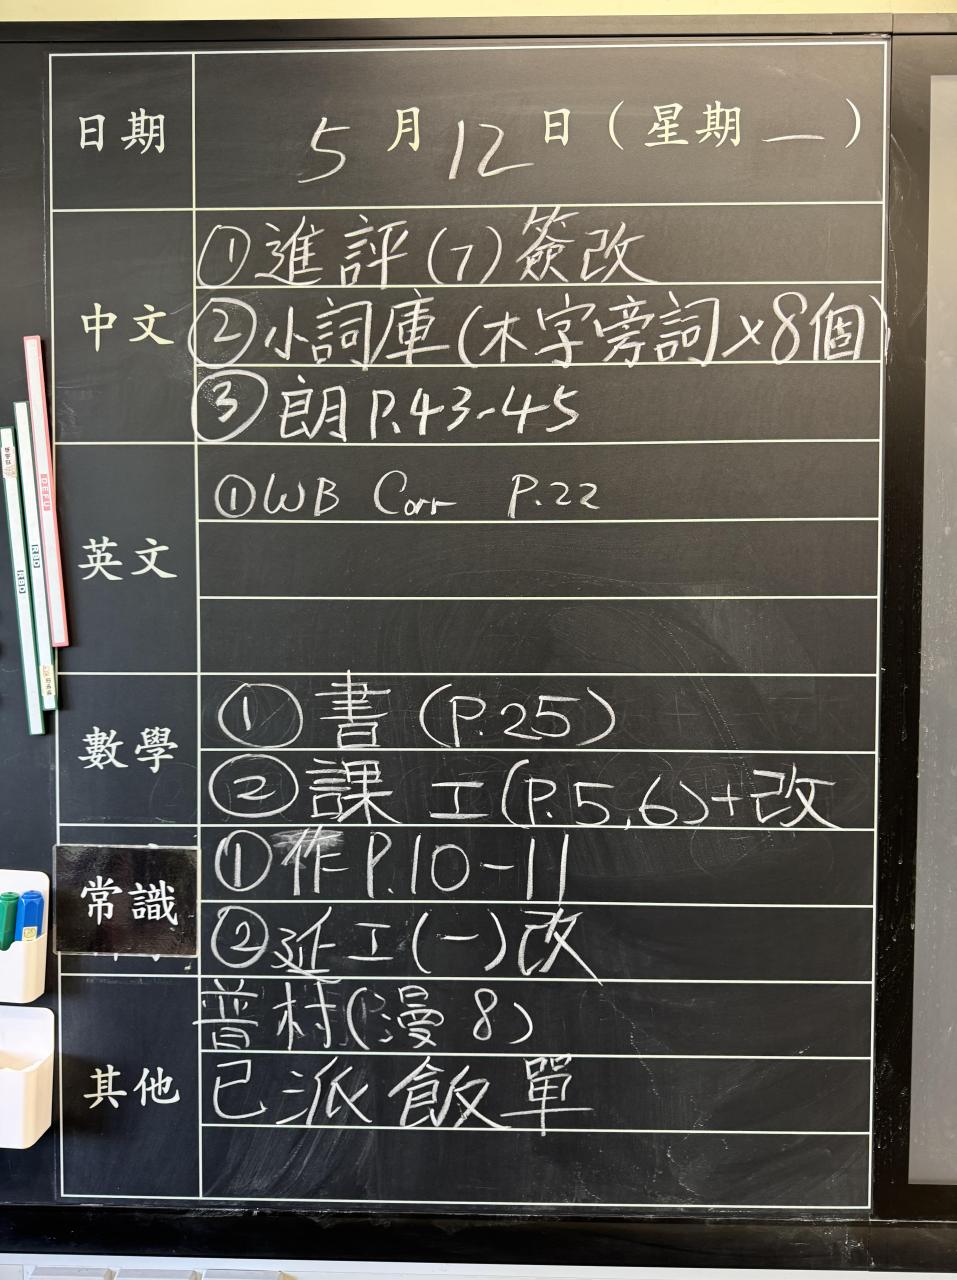 日期 5月12日(星期一)
中文
①進評(7)簽改
②小詞庫(木字旁詞×8個)
③朗P.43-45
英文
①WB Corr P.22
數學
①書(P.25)
②課工(P.5,6)+改
常識
①作P.10-11
②延工(一)改
其他
普村(漫8)
已派飯單